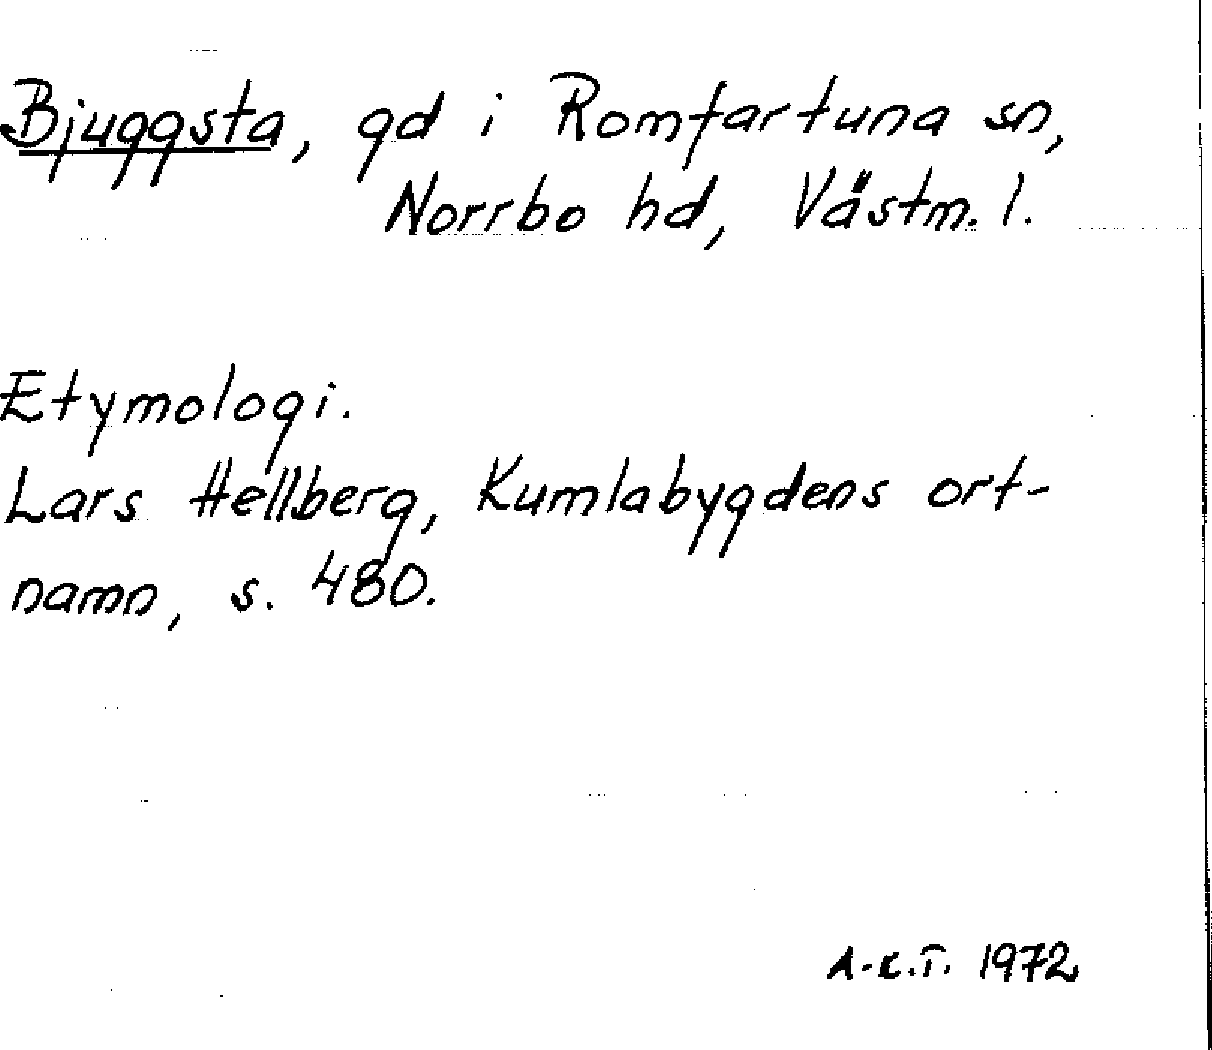 Bjuggsta, gd i Romfartuna sn,
Norrbo hd, Västm. l.
Etymologi.
Lars Hellberg, Kumlabygdens ort-
namn, s. 480.
A-K.T. 1972